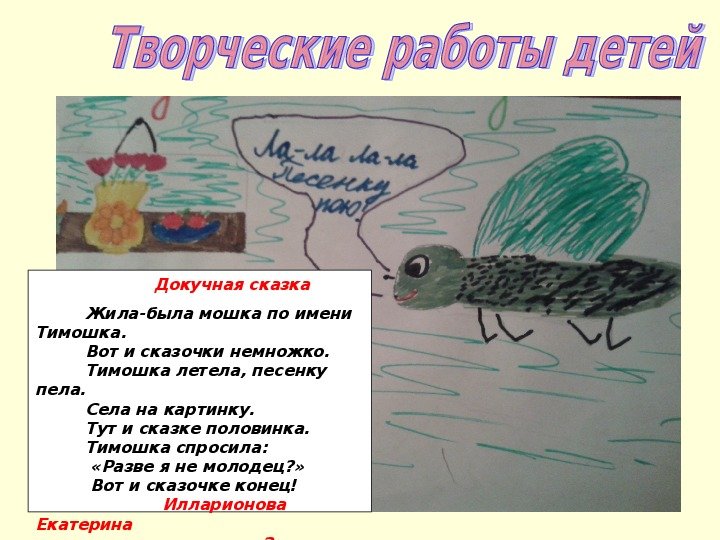 Творческие работы детей
Ла-ла ла-ла
Песенку
пою!
Докучная сказка
Жила-была мошка по имени
Тимошка.
Вот и сказочки немножко.
Тимошка летела, песенку
пела.
Села на картинку.
Тут и сказке половинка.
Тимошка спросила:
«Разве я не молодец?»
Вот и сказочке конец!
Илларионова
Екатерина